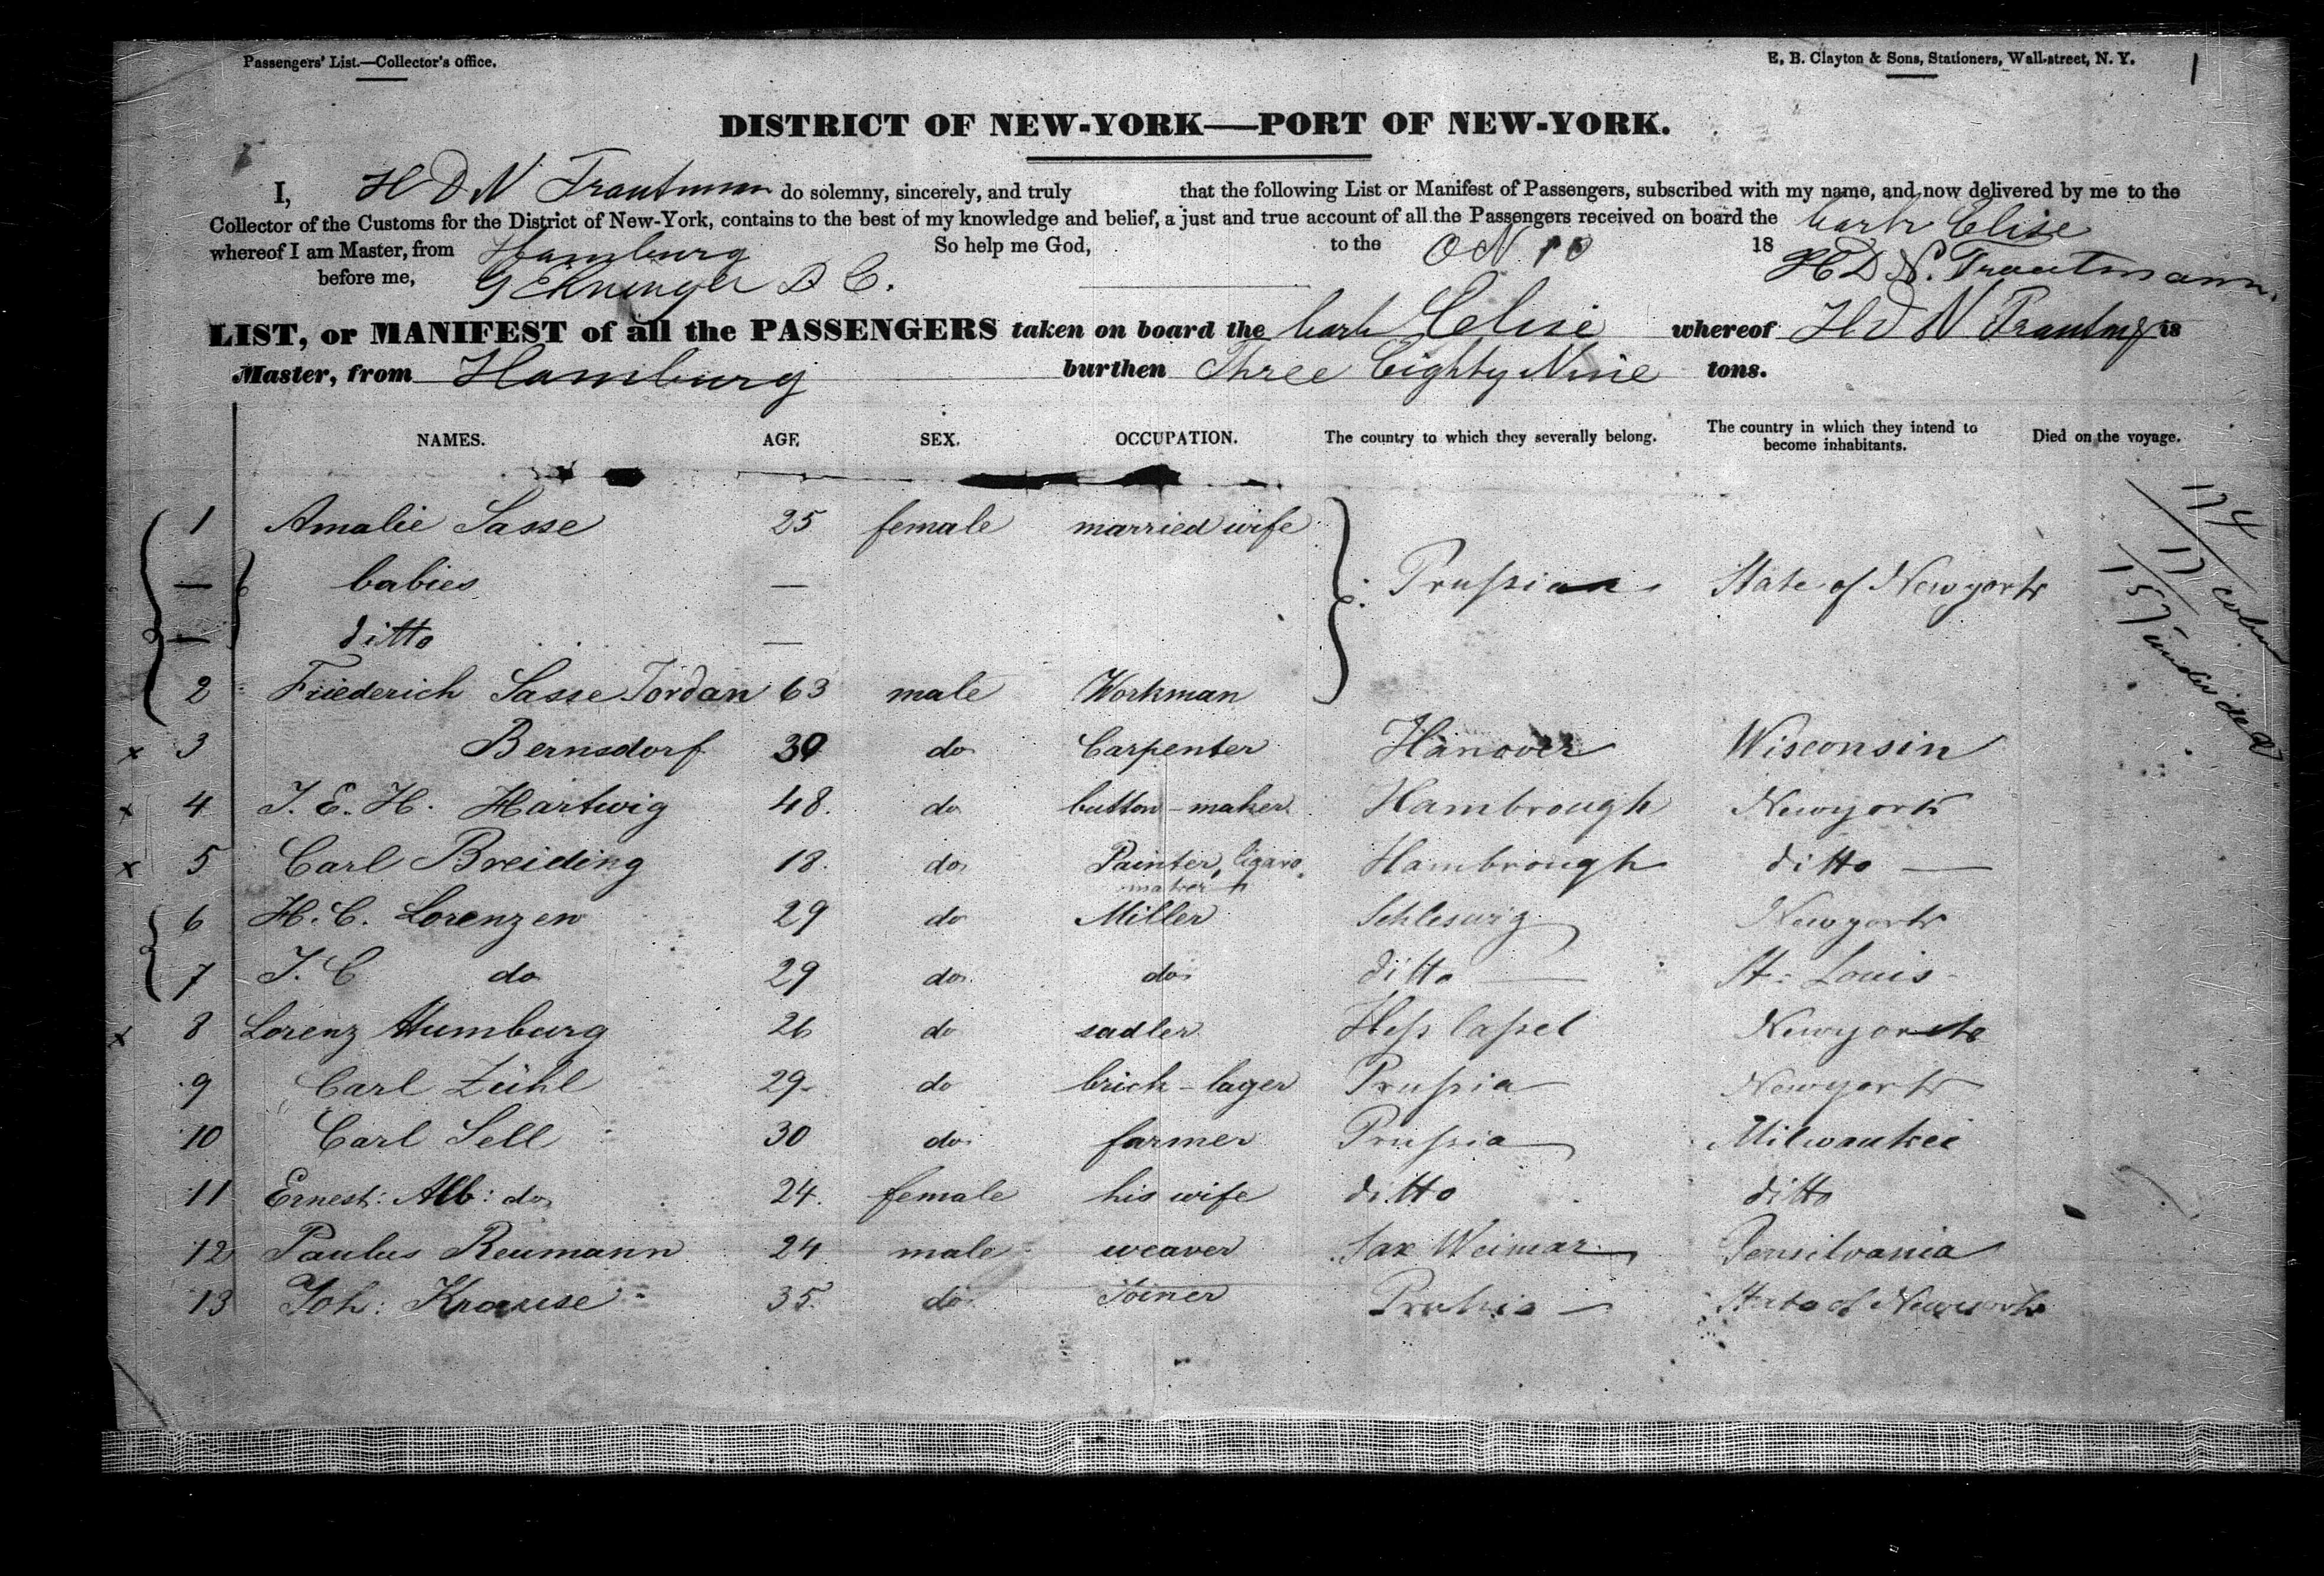 Passengers' List.—Collector's office.
E. B. Clayton & Sons, Stationers, Wall-street, N. Y.
1
DISTRICT OF NEW-YORK—PORT OF NEW-YORK.
I, H D N Trautman do solemny, sincerely, and truly that the following List or Manifest of Passengers, subscribed with my name, and now delivered by me to the
Collector of the Customs for the District of New-York, contains to the best of my knowledge and belief, a just and true account of all the Passengers received on board the bark Elise
whereof I am Master, from Hamburg So help me God, to the 18 H D N. Trautmann.
before me,
LIST, or MANIFEST of all the PASSENGERS taken on board the bark Elise whereof H D N Trautmg is
Master, from Hamburg burthen Three Eighty Nine tons.
NAMES. AGE. SEX. OCCUPATION. The country to which they severally belong. The country in which they intend to become inhabitants. Died on the voyage.
174
17 cabin
157 under deck
1 Amalie Sasse 25 female married wife
— babies — Prussian State of Newyork
— ditto —
2 Friederich Sasse Jordan 63 male Workman
x 3 Bernsdorf 39 do Carpenter Hanover Wisconsin
x 4 J. E. H. Hartwig 48. do button-maker Hambrough Newyork
x 5 Carl Breiding 18. do Painter, Cigaro maker Hambrough ditto —
6 H. C. Lorenzen 29 do Miller Schleswig Newyork
7 J. C do 29 do do ditto — St. Louis
x 8 Lorenz Humburg 26 do sadler Hess Cassel Newyork
9 Carl Zühl 29 do brick-lager Prussia Newyork
10 Carl Sell 30 do farmer Prussia Milwaukee
11 Ernest: Alb: do 24. female his wife ditto ditto
12 Paulus Reumann 24 male weaver Sax Weimar Pensilvania
13 Joh: Krause 35. do Joiner Prussia State of Newyork